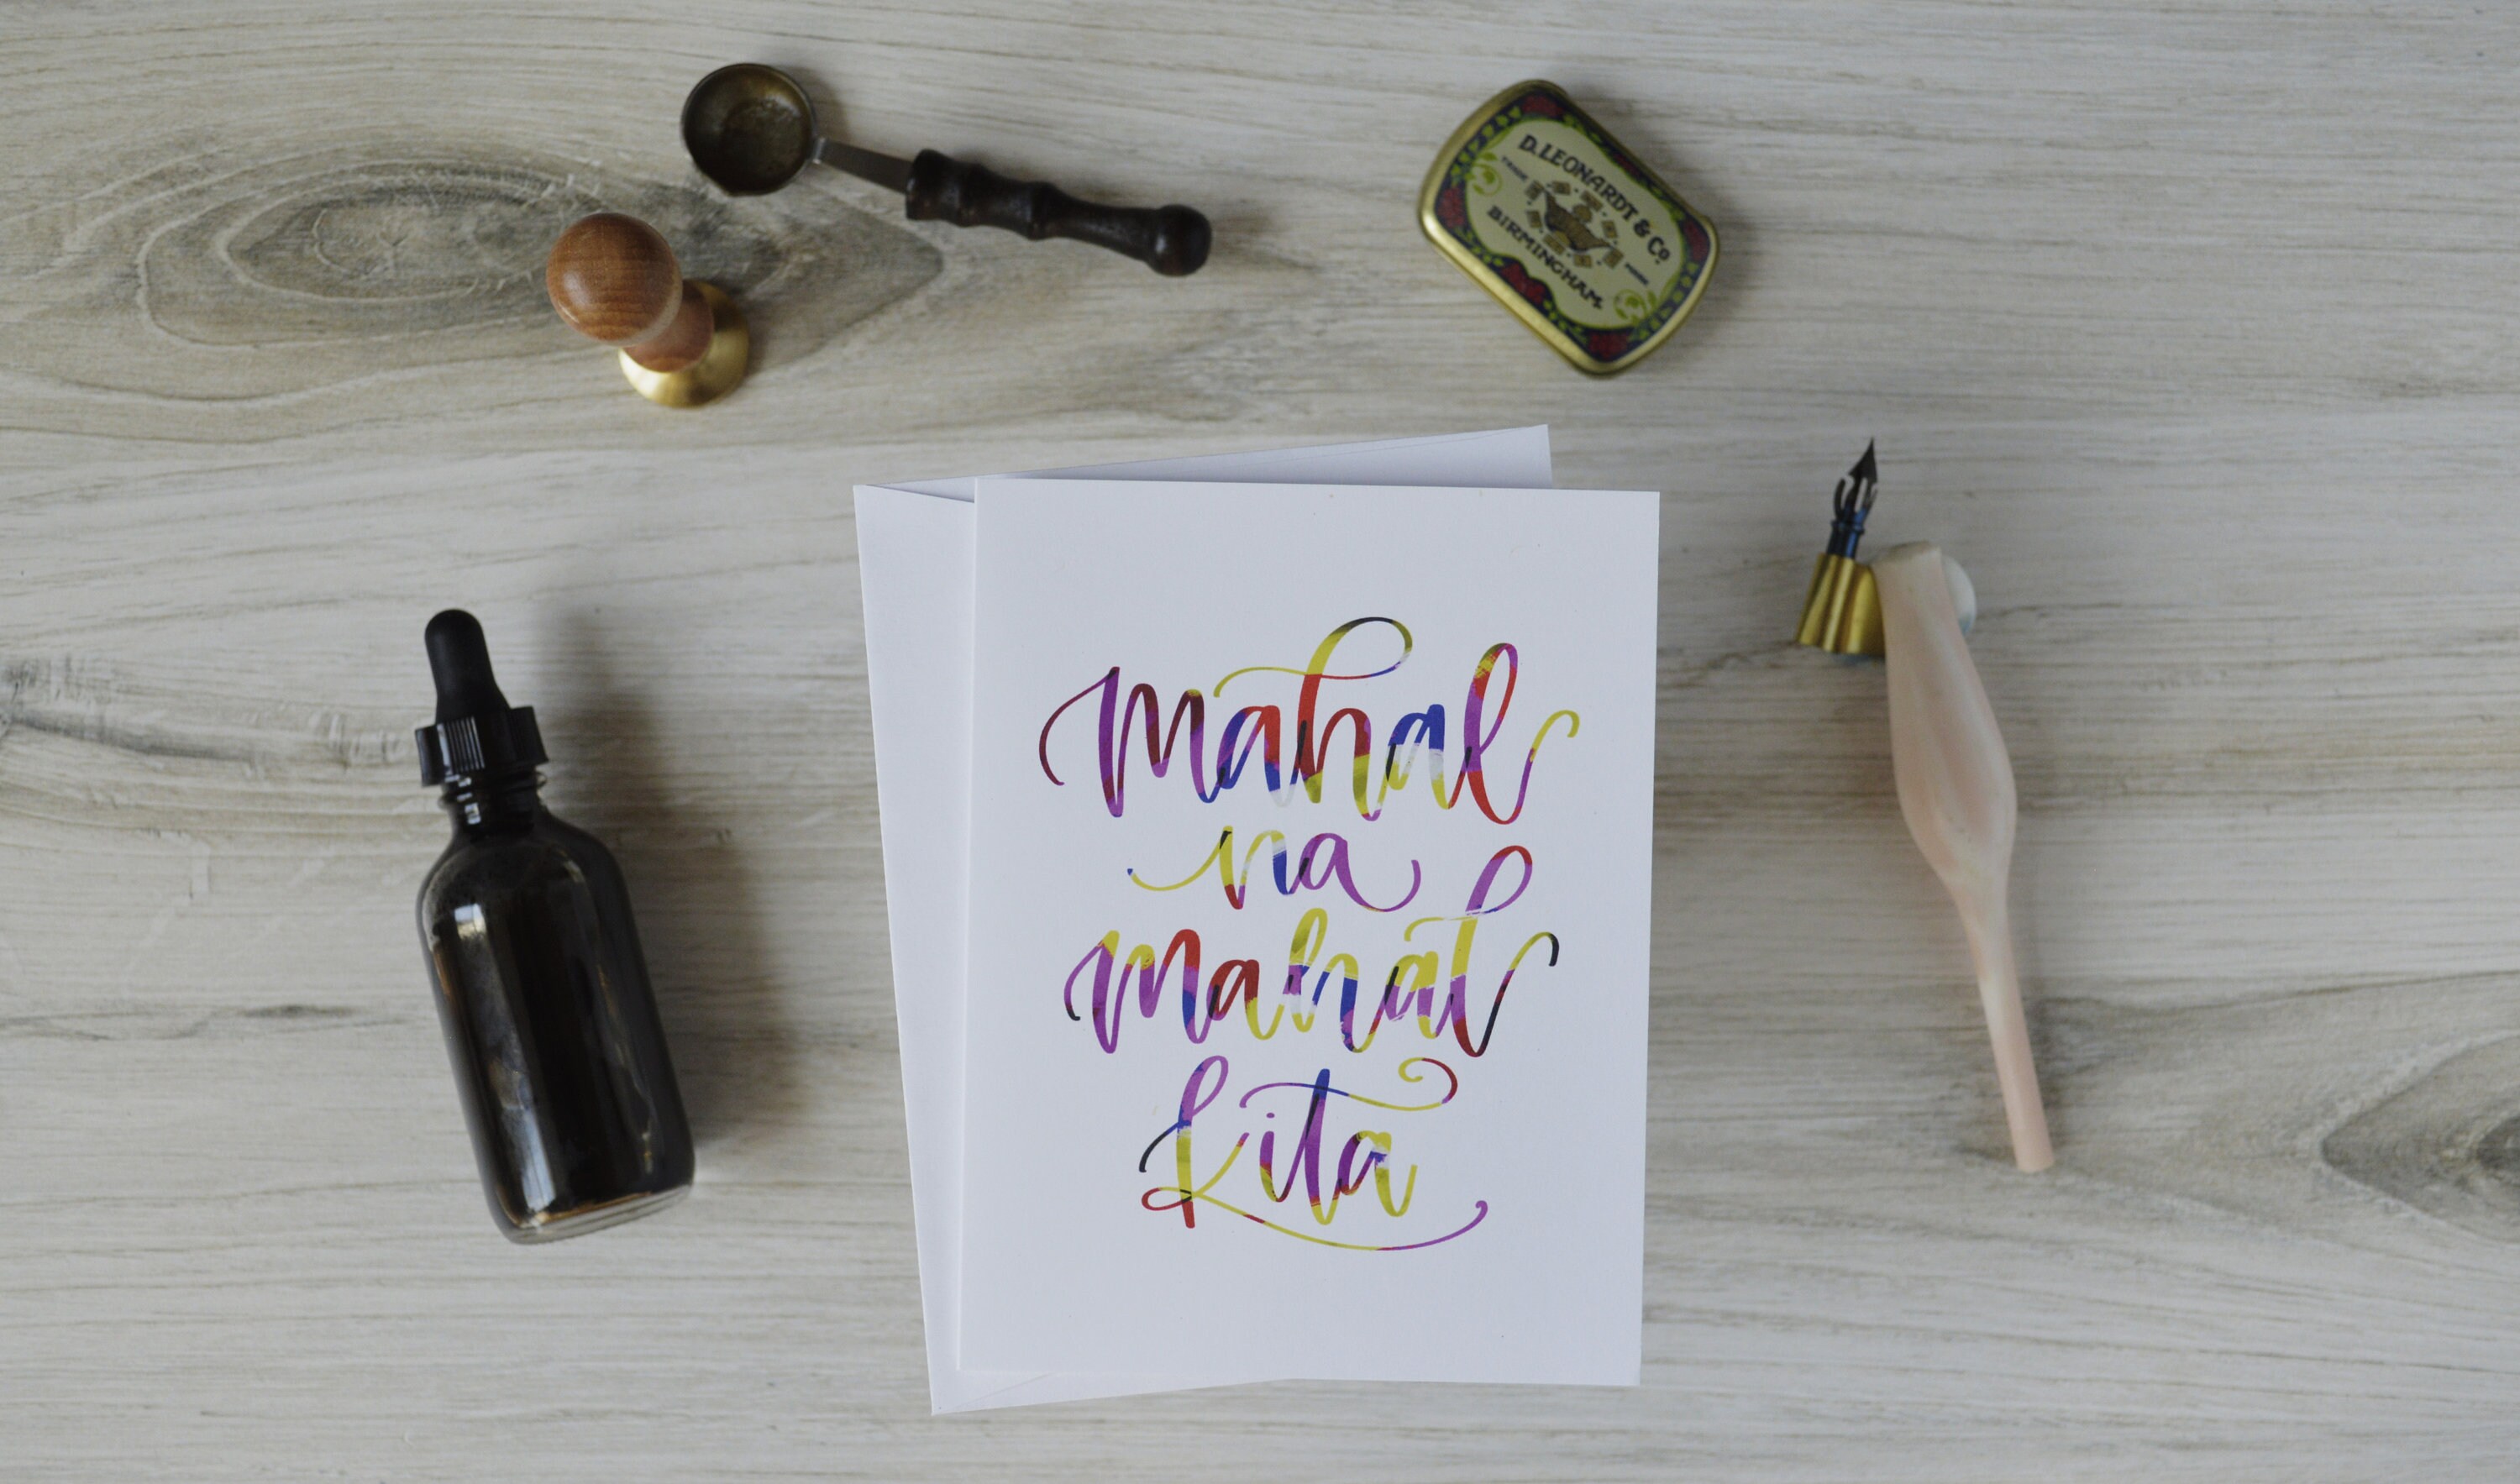 D. LEONARDT & Co
BIRMINGHAM
mahal
na
mahal
kita